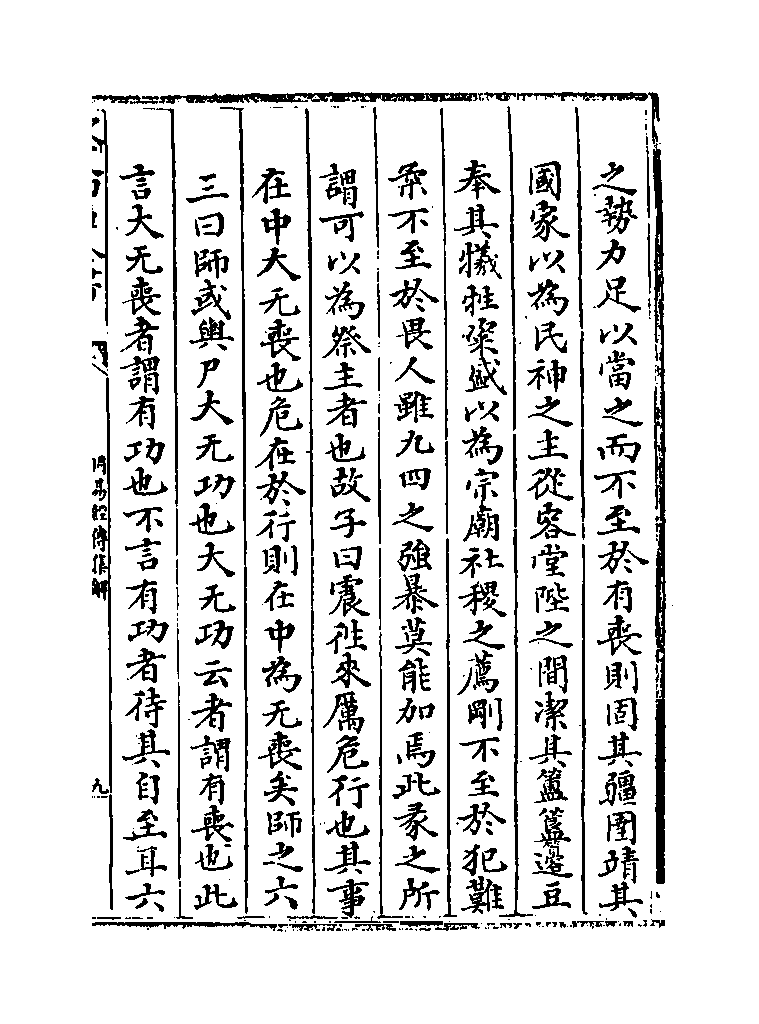 之勢力足以當之而不至於有喪則固其疆圉靖其
國家以為民神之主從容堂陛之間潔其簠簋籩豆
奉其犧牲粢盛以為宗廟社稷之薦剛不至於犯難
柔不至於畏人雖九四之強暴莫能加焉此彖之所
謂可以為祭主者也故子曰震徃來厲危行也其事
在中大无喪也危在於行則在中為无喪矣師之六
三曰師或輿尸大无功也大无功云者謂有喪也此
言大无喪者謂有功也不言有功者待其自至耳六
周易經傳集解
九